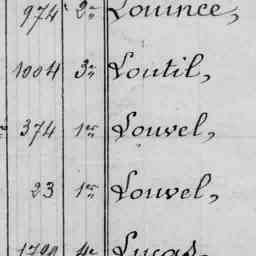 974 2e Louince,
1004 3e Loutil,
374 1er Louvel,
23 1er Louvel,
4e Lucas,